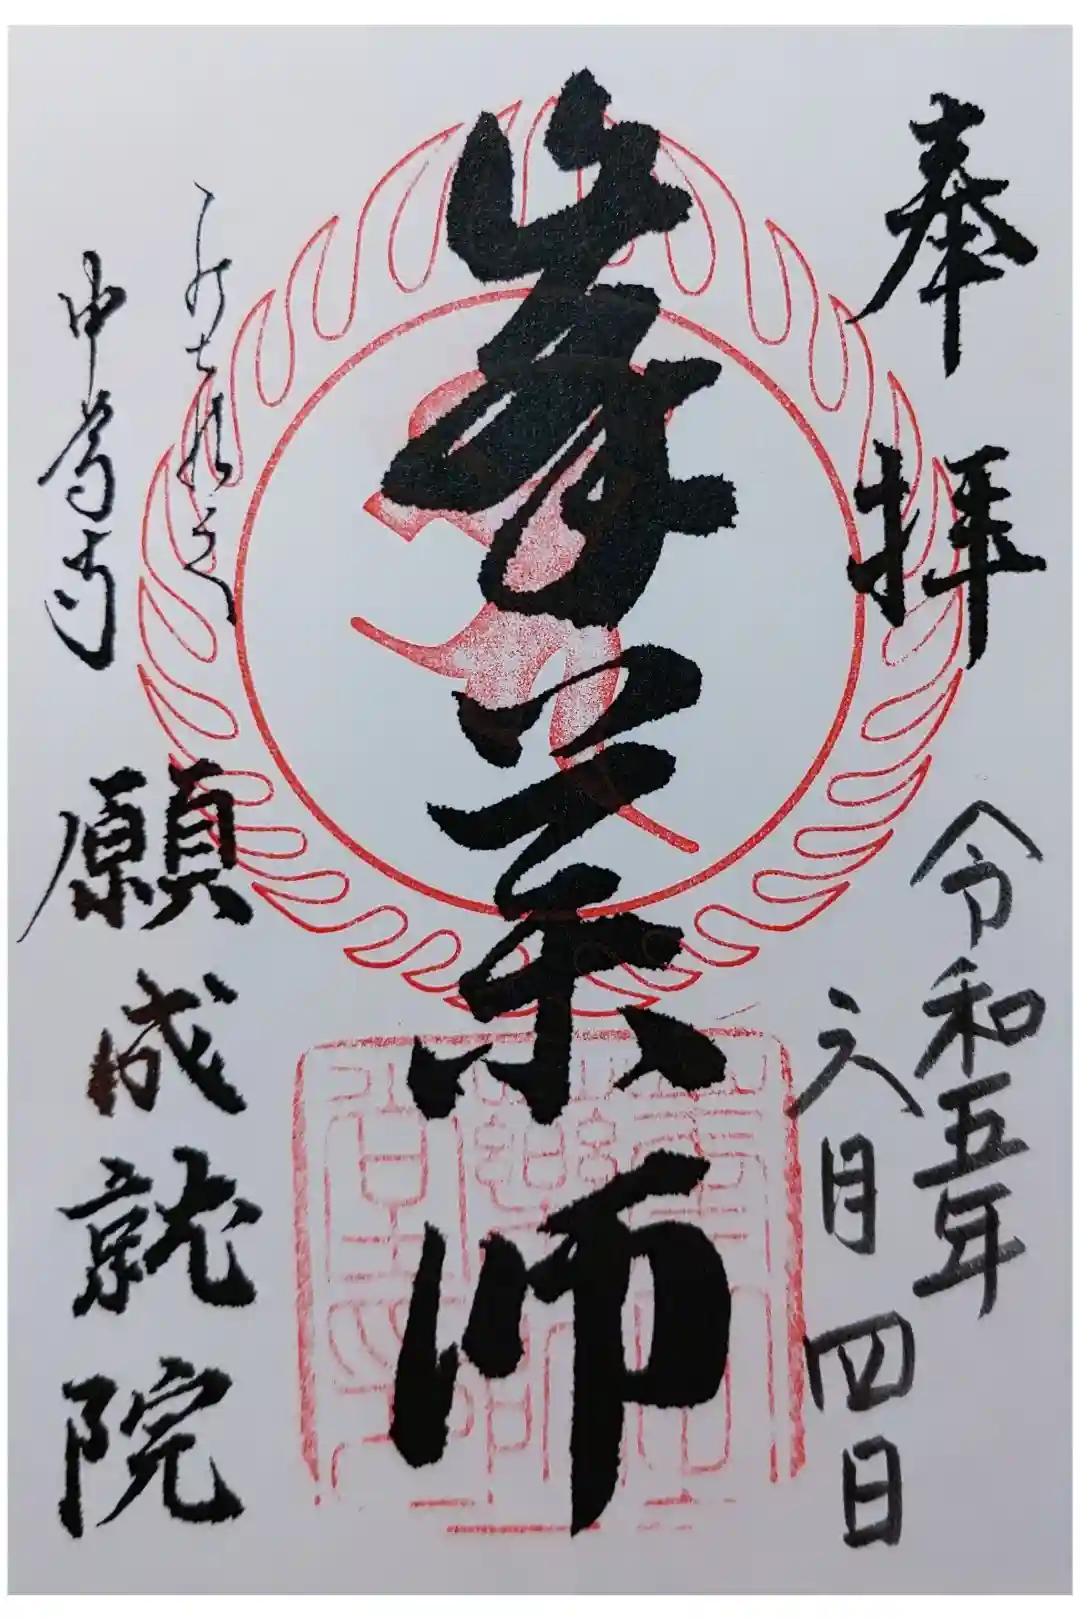 奉拝
令和五年
六月四日
峯薬師
中尊寺
願成就院